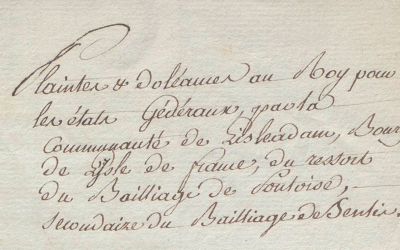 Plaintes & doléances au Roy pour
les états Généraux, par la
Communauté de Lisleadam, Bourg
de L'isle de france, du ressort
du Bailliage de Pontoise,
secondaire du Bailliage de Senlis.